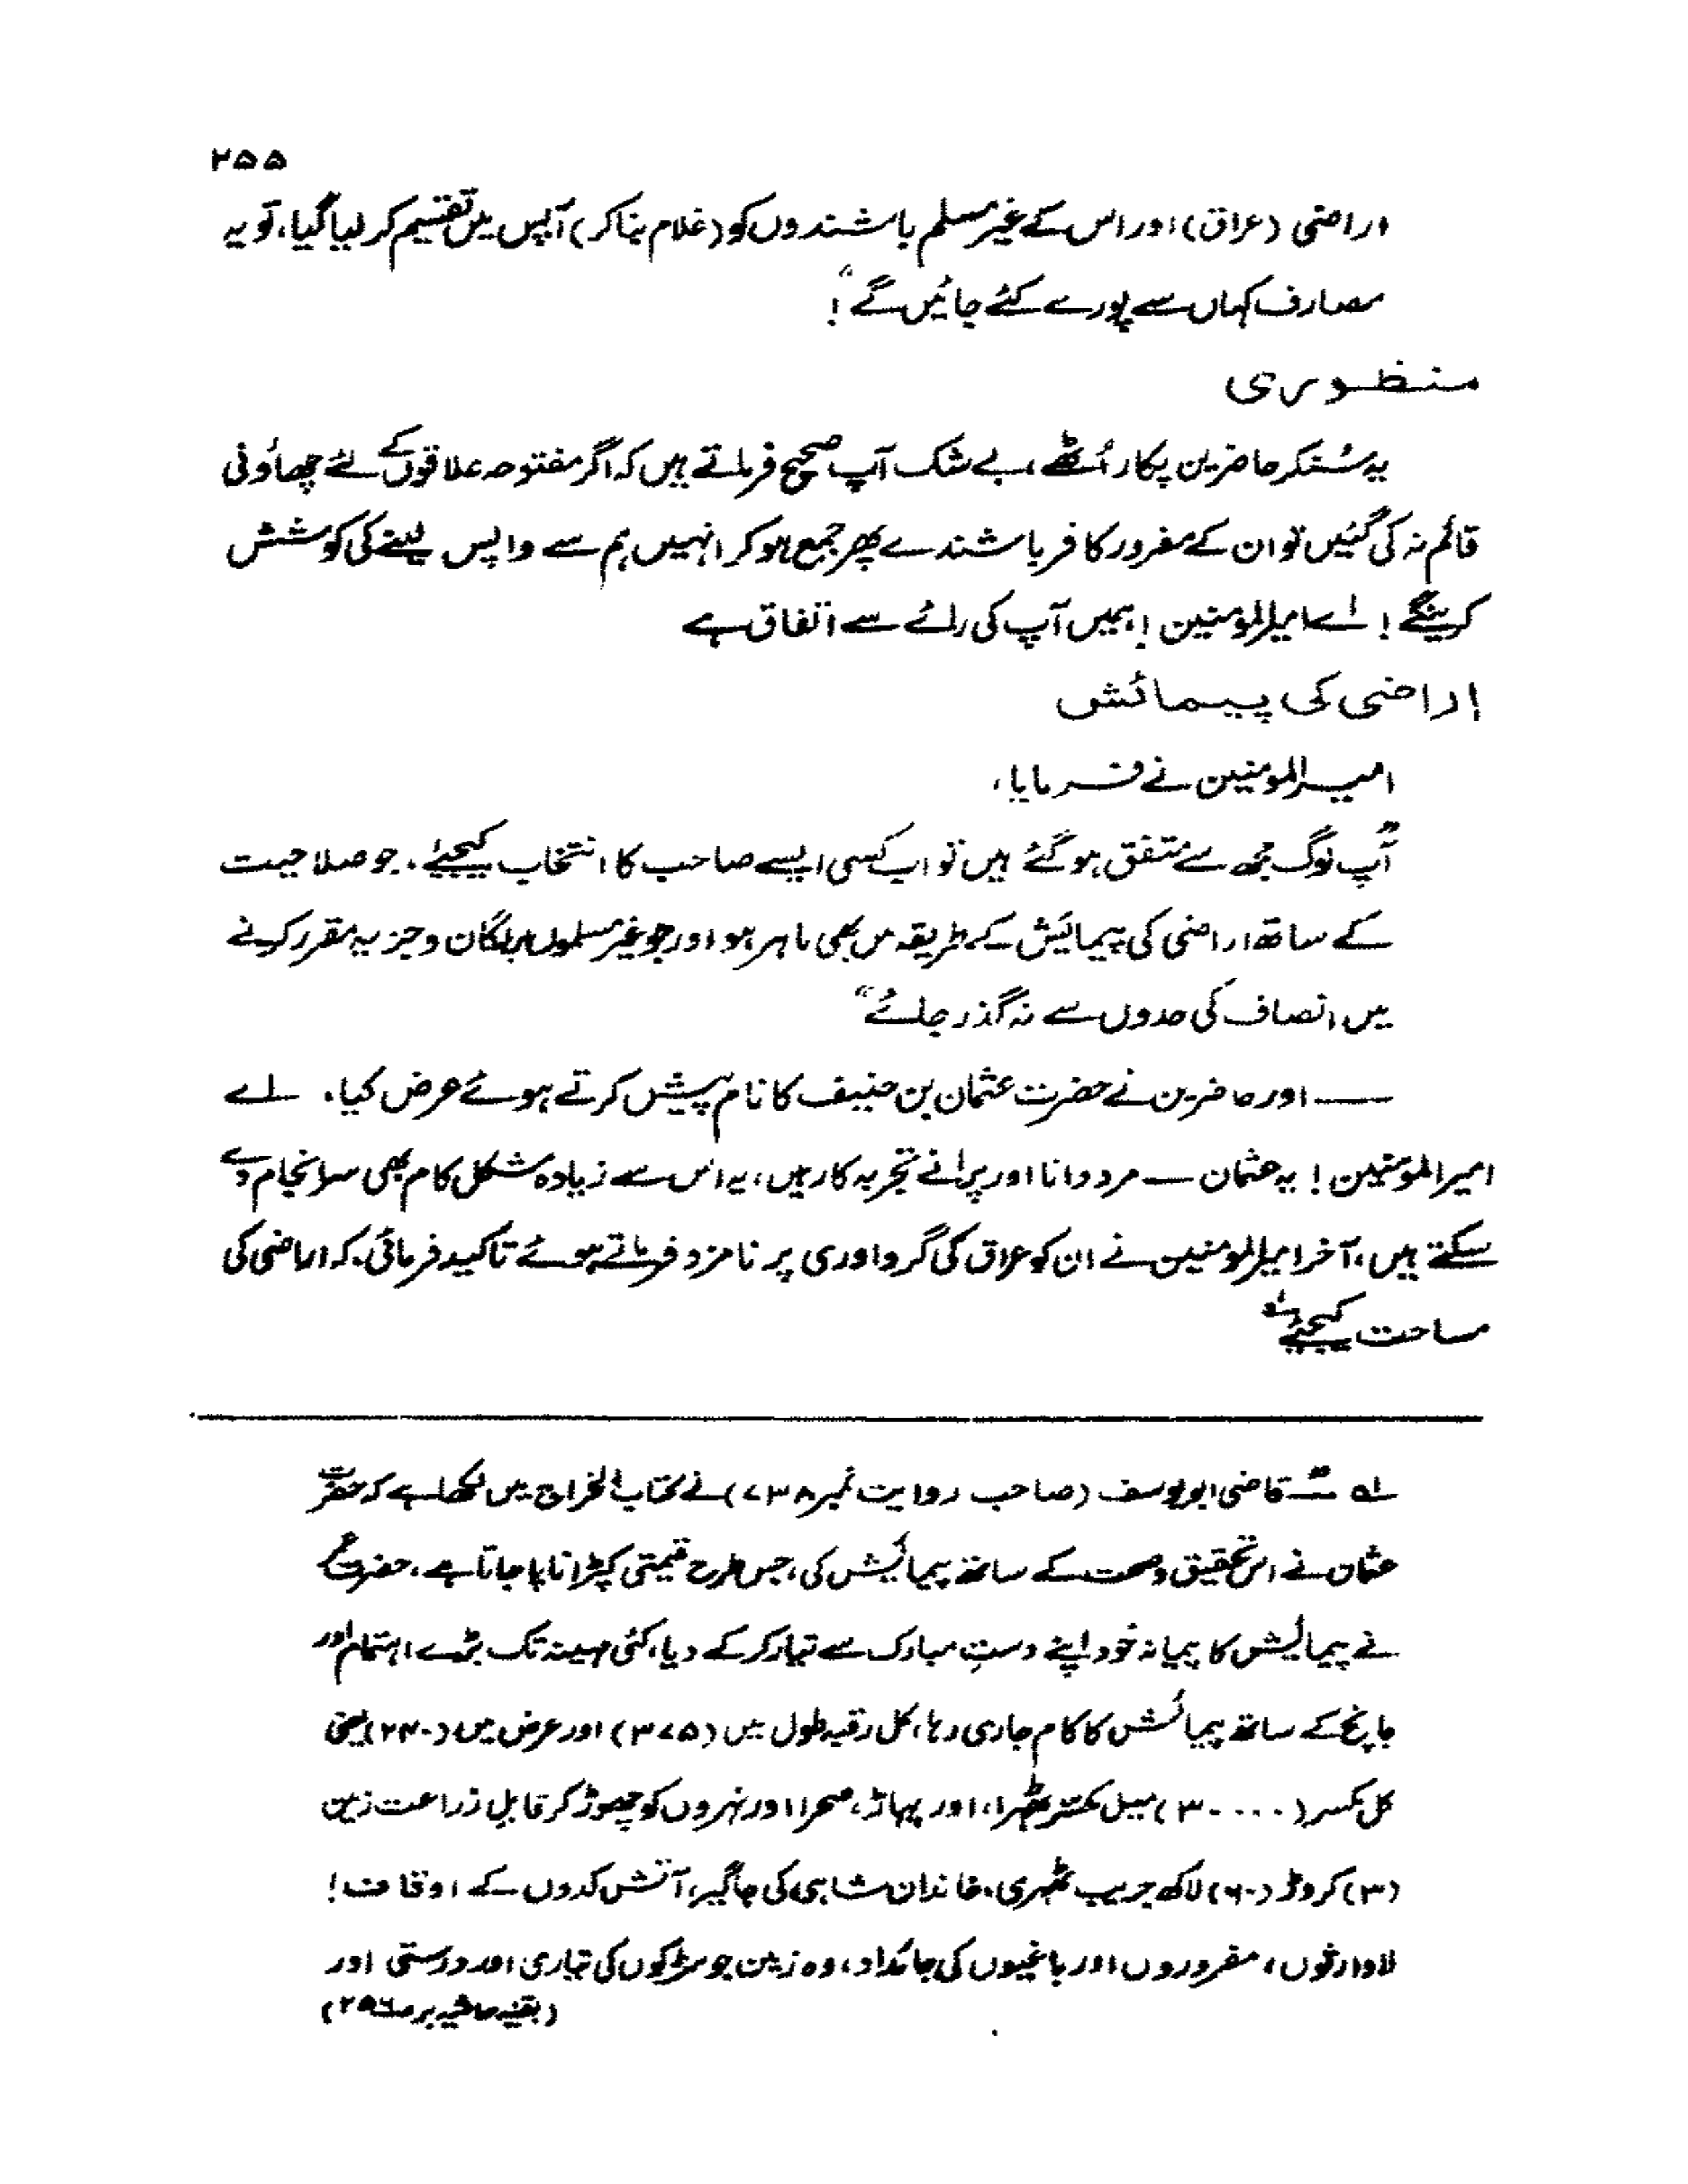 ۲۵۵
اراضی (عراق) اور اس کے غیر مسلم باشندوں کو (غلام بنا کر) آپس میں تقسیم کر لیا گیا، تو یہ
مصارف کہاں سے پورے کئے جائیں گے"!
منظوری
یہ سُنکر حاضرین پکار اُٹھے، بے شک آپ صحیح فرماتے ہیں کہ اگر مفتوحہ علاقوں کے لئے چھاؤنی
قائم نہ کی گئیں تو ان کے مفرور کافر باشندے پھر جمع ہو کر انہیں ہم سے واپس لینے کی کوشش
کرینگے! اے امیرالمؤمنین! ہمیں آپ کی رائے سے اتفاق ہے
اراضی کی پیمائش
امیرالمومنین نے فرمایا،
"آپ لوگ مجھ سے متفق ہو گئے ہیں تو اب کسی ایسے صاحب کا انتخاب کیجیئے، جو صلاحیت
کے ساتھ اراضی کی پیمائش کے طریقہ میں بھی ماہر ہو اور جو غیر مسلموں پر لگان و جزیہ مقرر کرنے
میں انصاف کی حدوں سے نہ گذر جائے"
—— اور حاضرین نے حضرت عثمان بن حنیف کا نام پیش کرتے ہوئے عرض کیا، اے
امیرالمؤمنین! یہ عثمان — مرد دانا اور پرانے تجربہ کار ہیں، یہ اس سے زیادہ مشکل کام بھی سرانجام دے
سکتے ہیں، آخر امیرالمومنین نے ان کو عراق کی گرداوری پر نامزد فرماتے ہوئے تاکید فرمائی، کہ اراضی کی
مساحت کیجیئے لہ
لہ قاضی ابویوسف (صاحب روایت نمبر ۷۳۸) نے کتاب الخراج میں لکھا ہے کہ حضرت
عثمان نے اس تحقیق و صحت کے ساتھ پیمائیش کی، جس طرح قیمتی کپڑا ناپا جاتا ہے، حضرت عمر
نے پیمائیش کا پیمانہ خود اپنے دستِ مبارک سے تیار کر کے دیا، کئی مہینہ تک بڑے اہتمام اور
جانچ کے ساتھ پیمائش کا کام جاری رہا، کل رقبہ طول میں (۳۷۵) اور عرض میں (۲۴۰) یعنی
کل مکسر (۳۰۰۰۰) میل مکسّر ٹھہرا، اور پہاڑ، صحرا اور نہروں کو چھوڑ کر قابلِ زراعت زمین
(۳) کروڑ (۶۰) لاکھ جریب ٹھہری، خاندان شاہی کی جاگیر، آتش کدوں کے اوقاف!
لاوارثوں، مفروروں اور باغیوں کی جائداد، وہ زمین جو سڑکوں کی تیاری اور درستی اور
(بقیہ حاشیہ بر ص۲۵۶)